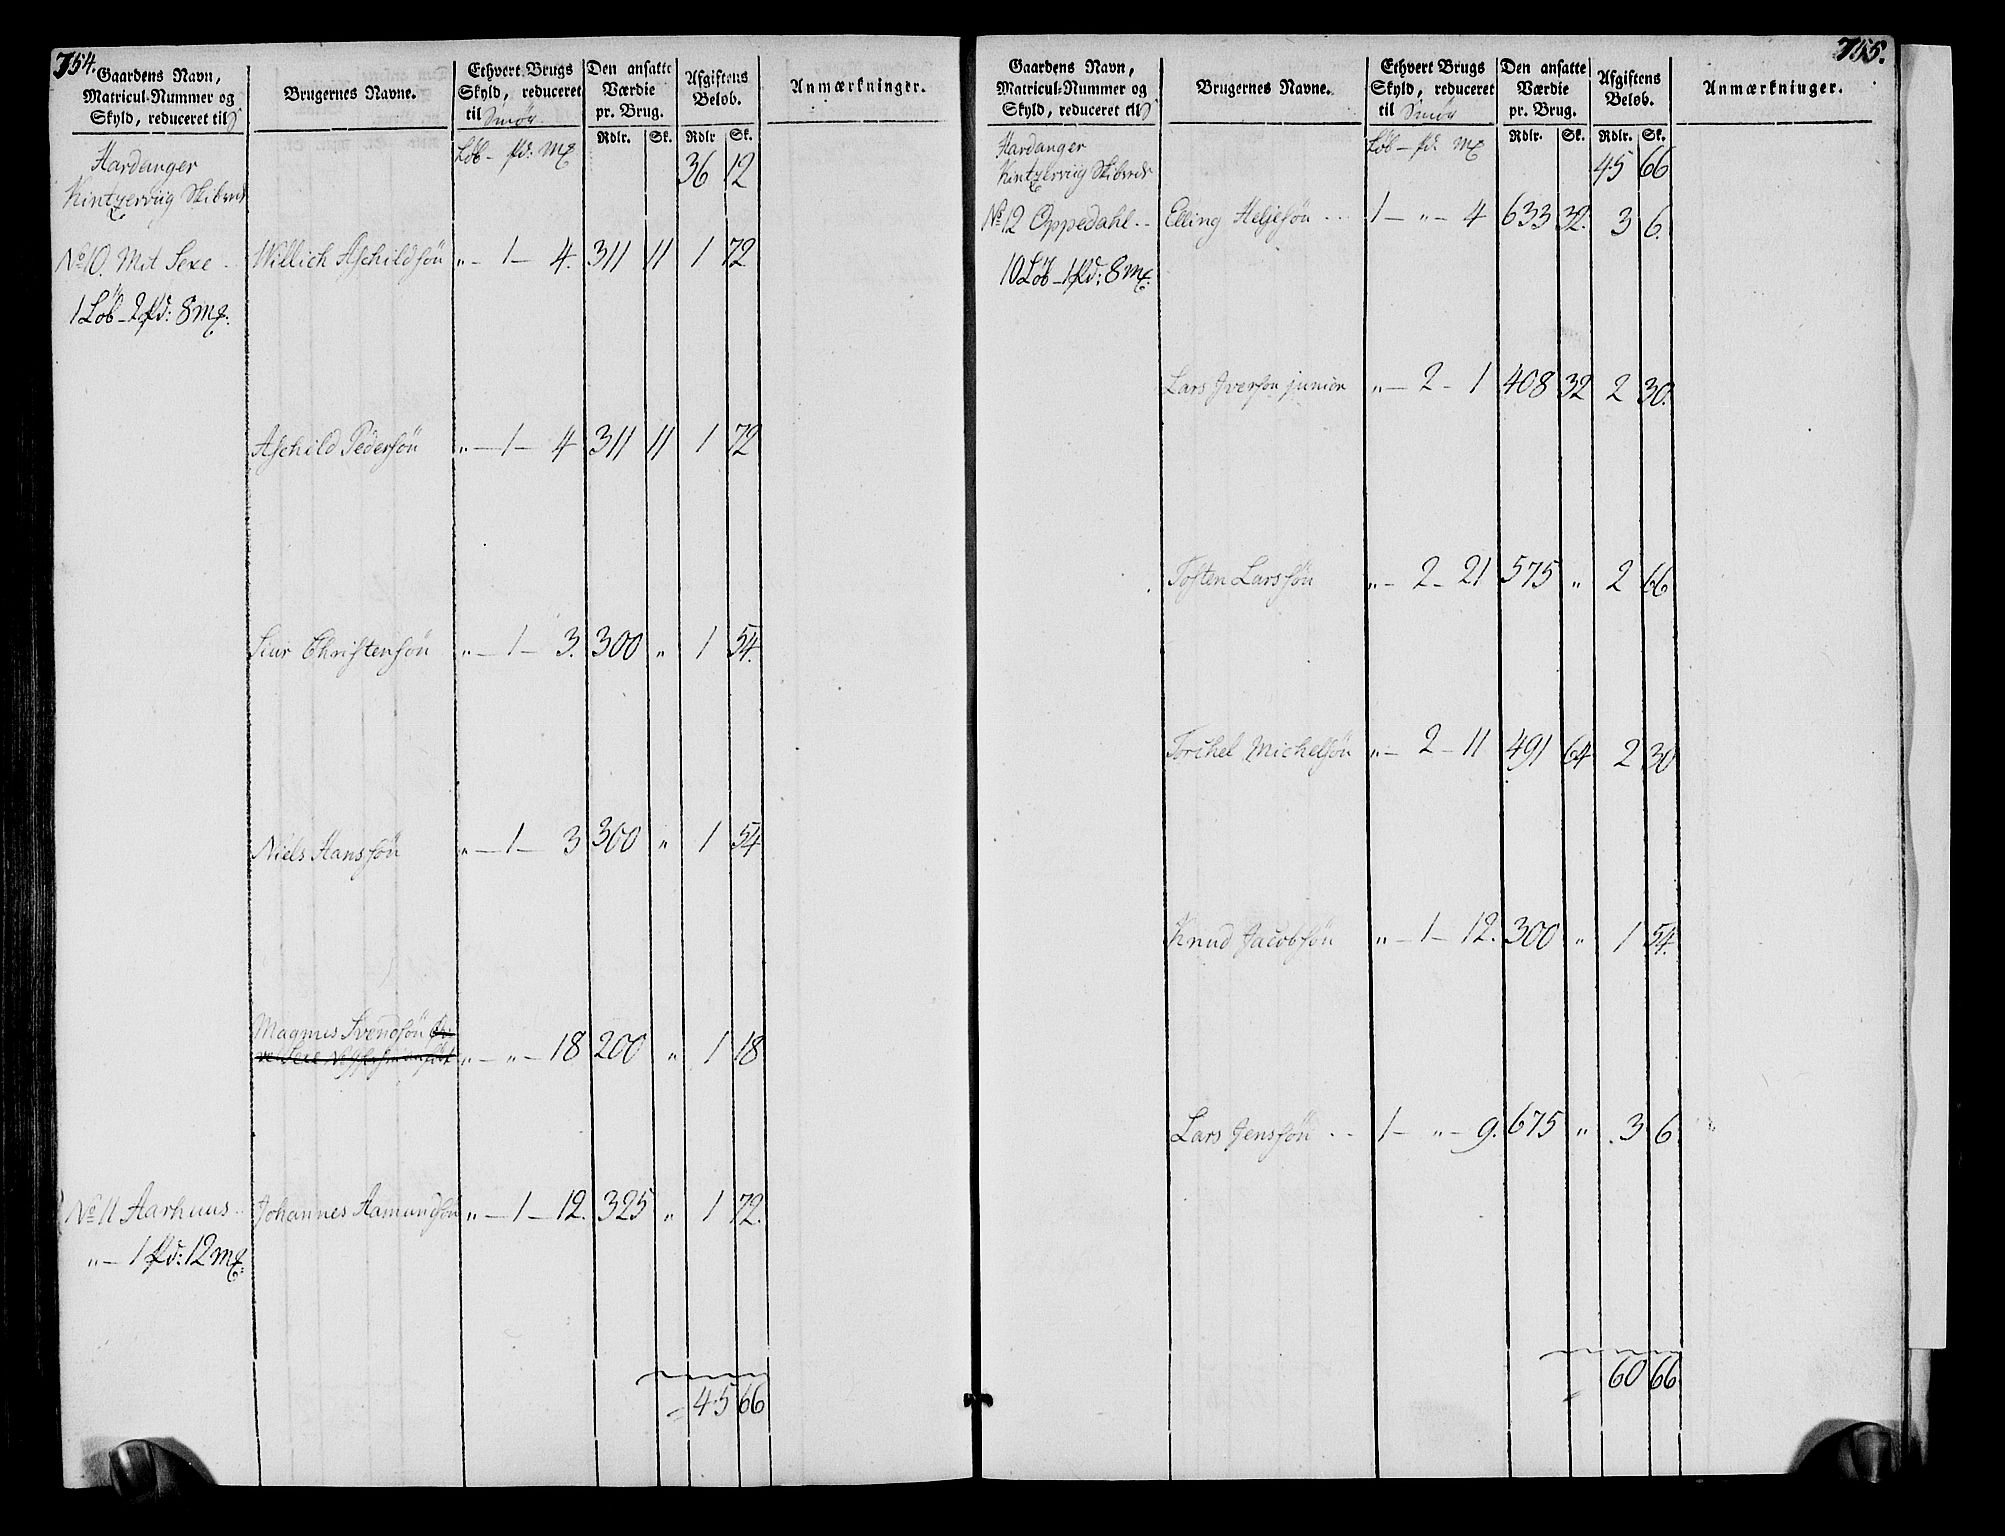 754.
Gaardens Navn, Matricul-Nummer og Skyld, reduceret til S
Brugernes Navne.
Ethvert Brugs Skyld, reduceret til Smör
Den ansatte Værdie pr. Brug.
Afgiftens Beløb.
Anmærkninger.
Löb - pd: mk
Rdlr. Sk. Rdlr Sk.
Hardanger 36 12
Kintzerviig Skibrede
No 10. Mit Sexe .. Willich Aschildsön „ - 1 - 4. 311 11 1 72
1 Löb - 2 pd: 8 mk:
Aschild Pedersön „ - 1 - 4 311 11 1 72
Siur Christensön „ - 1 - 3. 300 „ 1 54.
Niels Hanssön „ - 1 - 3 300 „ 1 54
Magnus Svendsön
„ - „ - 18 200 „ 1 18
No 11 Aarhuus .. Johannes Aamundsön „ - 1 - 12. 325 „ 1 72.
„ - 1 pd: 12 mk:
45 66
755.
Gaardens Navn, Matricul-Nummer og Skyld, reduceret til S
Brugernes Navne.
Ethvert Brugs Skyld, reduceret til Smör
Den ansatte Værdie pr. Brug.
Afgiftens Beløb.
Anmærkninger.
Löb - pd. mk
Rdlr. Sk. Rdlr. Sk.
Hardanger 45 66
Kintzerviig Skibrede
No 12 Oppedahl .. Elling Heljesön ... 1 - „ - 4 633 32. 3 6.
10 Löb - 1 pd: 8 mk:
Lars Iversön junior „ - 2 - 1 408 32 2 30.
Tosten Larssön „ - 2 - 21 575 „ 2 66
Torchel Michelsön „ - 2 - 11 491 64 2 30
Knud Jacobsön „ - 1 - 12. 300 „ 1 54.
Lars Jenssön .. 1 - „ - 9. 675 „ 3 6
60 66